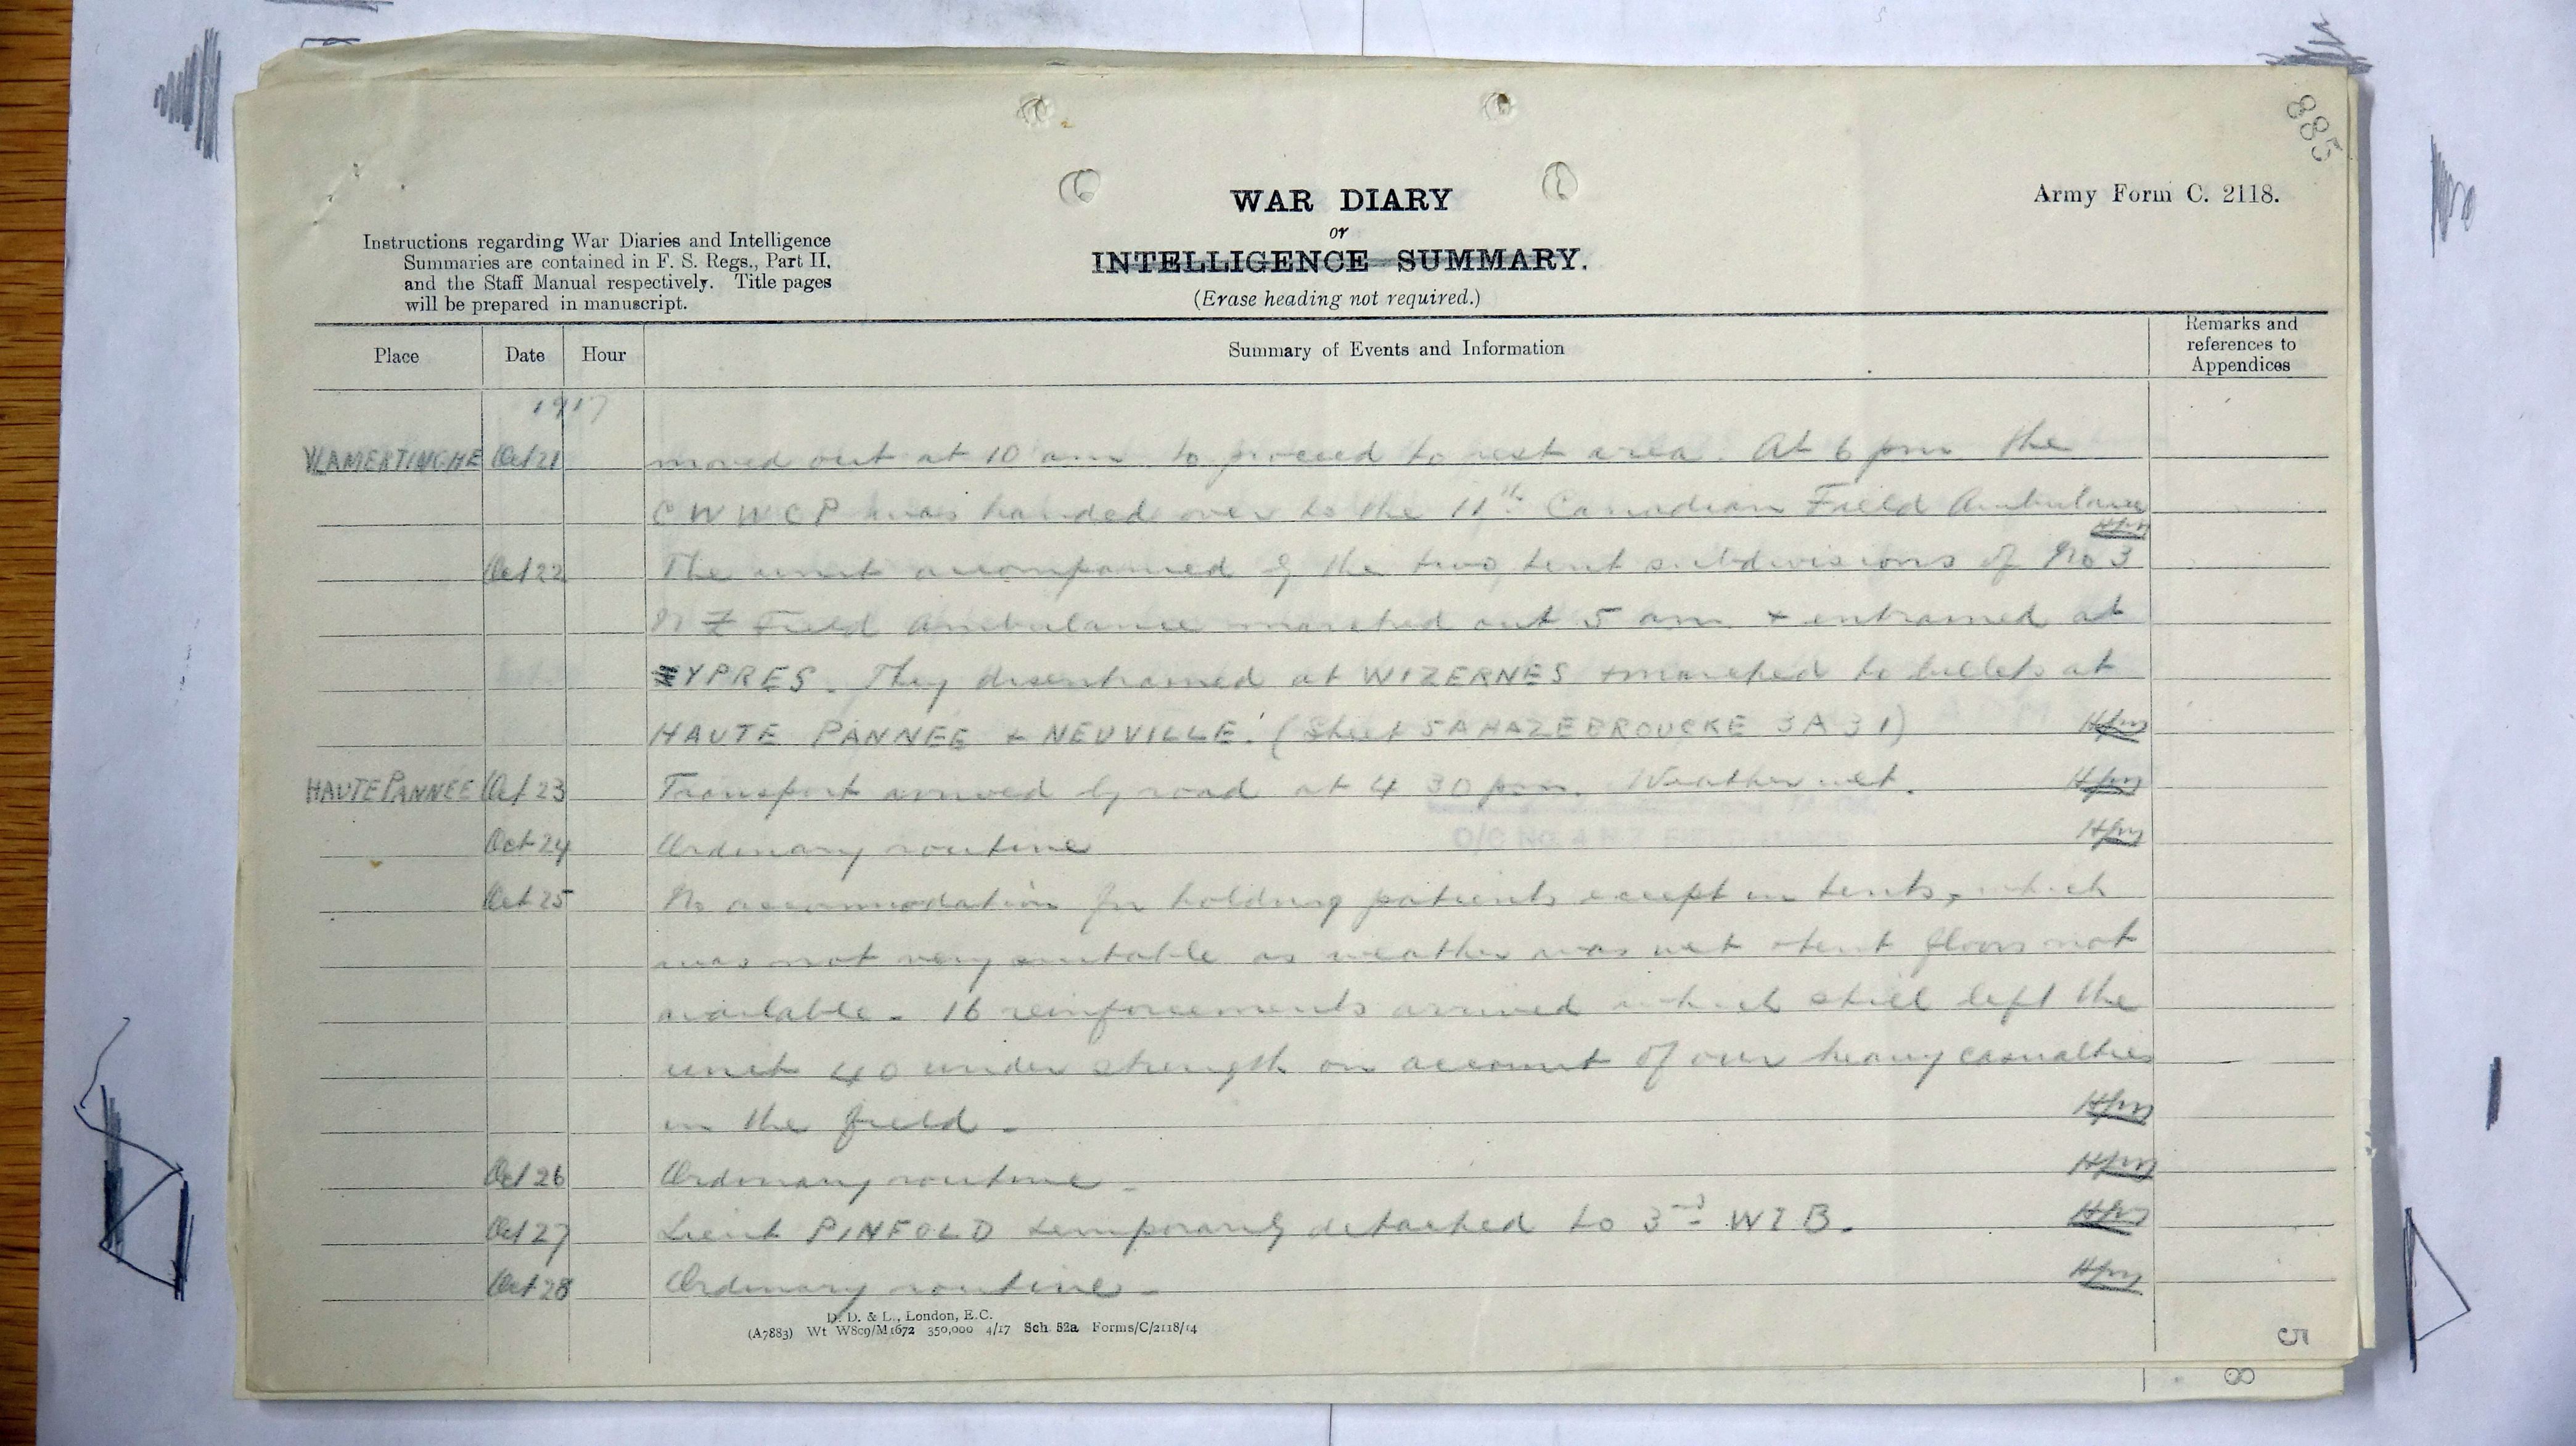 885
WAR DIARY
Army Form C. 2118.
or
INTELLIGENCE SUMMARY.
(Erase heading not required.)
Instructions regarding War Diaries and Intelligence
Summaries are contained in F. S. Regs., Part II,
and the Staff Manual respectively. Title pages
will be prepared in manuscript.
Place Date Hour Summary of Events and Information Remarks and references to Appendices
1917
VLAMERTINGHE Oct 21 moved out at 10 am to proceed to rest area. At 6 pm the
CWWCP was handed over to the 11th Canadian Field Ambulance
Oct 22 The unit accompanied by the two tent subdivisions of No 3
NZ Field Ambulance marched out 5 am + entrained at
YPRES. They disentrained at WIZERNES + marched to billets at
HAUTE PANNEE + NEUVILLE. (Sheet 5A HAZEBROUCKE 3A31)
HAUTE PANNEE Oct 23 Transport arrived by road at 4 30 pm. Weather wet.
Oct 24 Ordinary routine
Oct 25 No accommodation for holding patients except in tents, which
was not very suitable as weather was wet + tent floors not
available. 16 reinforcements arrived which still left the
unit 40 under strength on account of our heavy casualties
in the field.
Oct 26 Ordinary routine.
Oct 27 Lieut PINFOLD temporarily detached to 3rd WIB.
Oct 28 Ordinary routine.
D. D. & L., London, E.C.
(A7883) Wt W809/M1672 350,000 4/17 Sch 52a Forms/C/2118/14
5
8